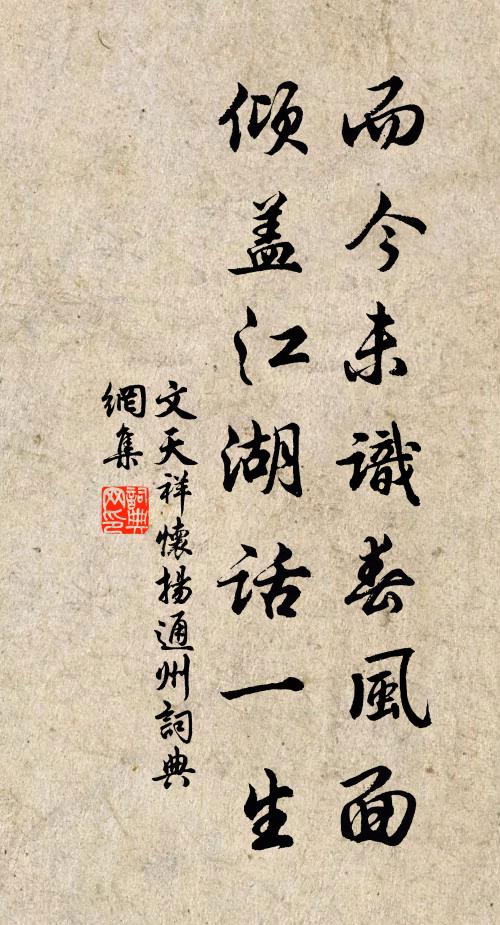 而今未識春風面
傾盖江湖話一生
文天祥懷揚通州詞典
網集
詞典
网印